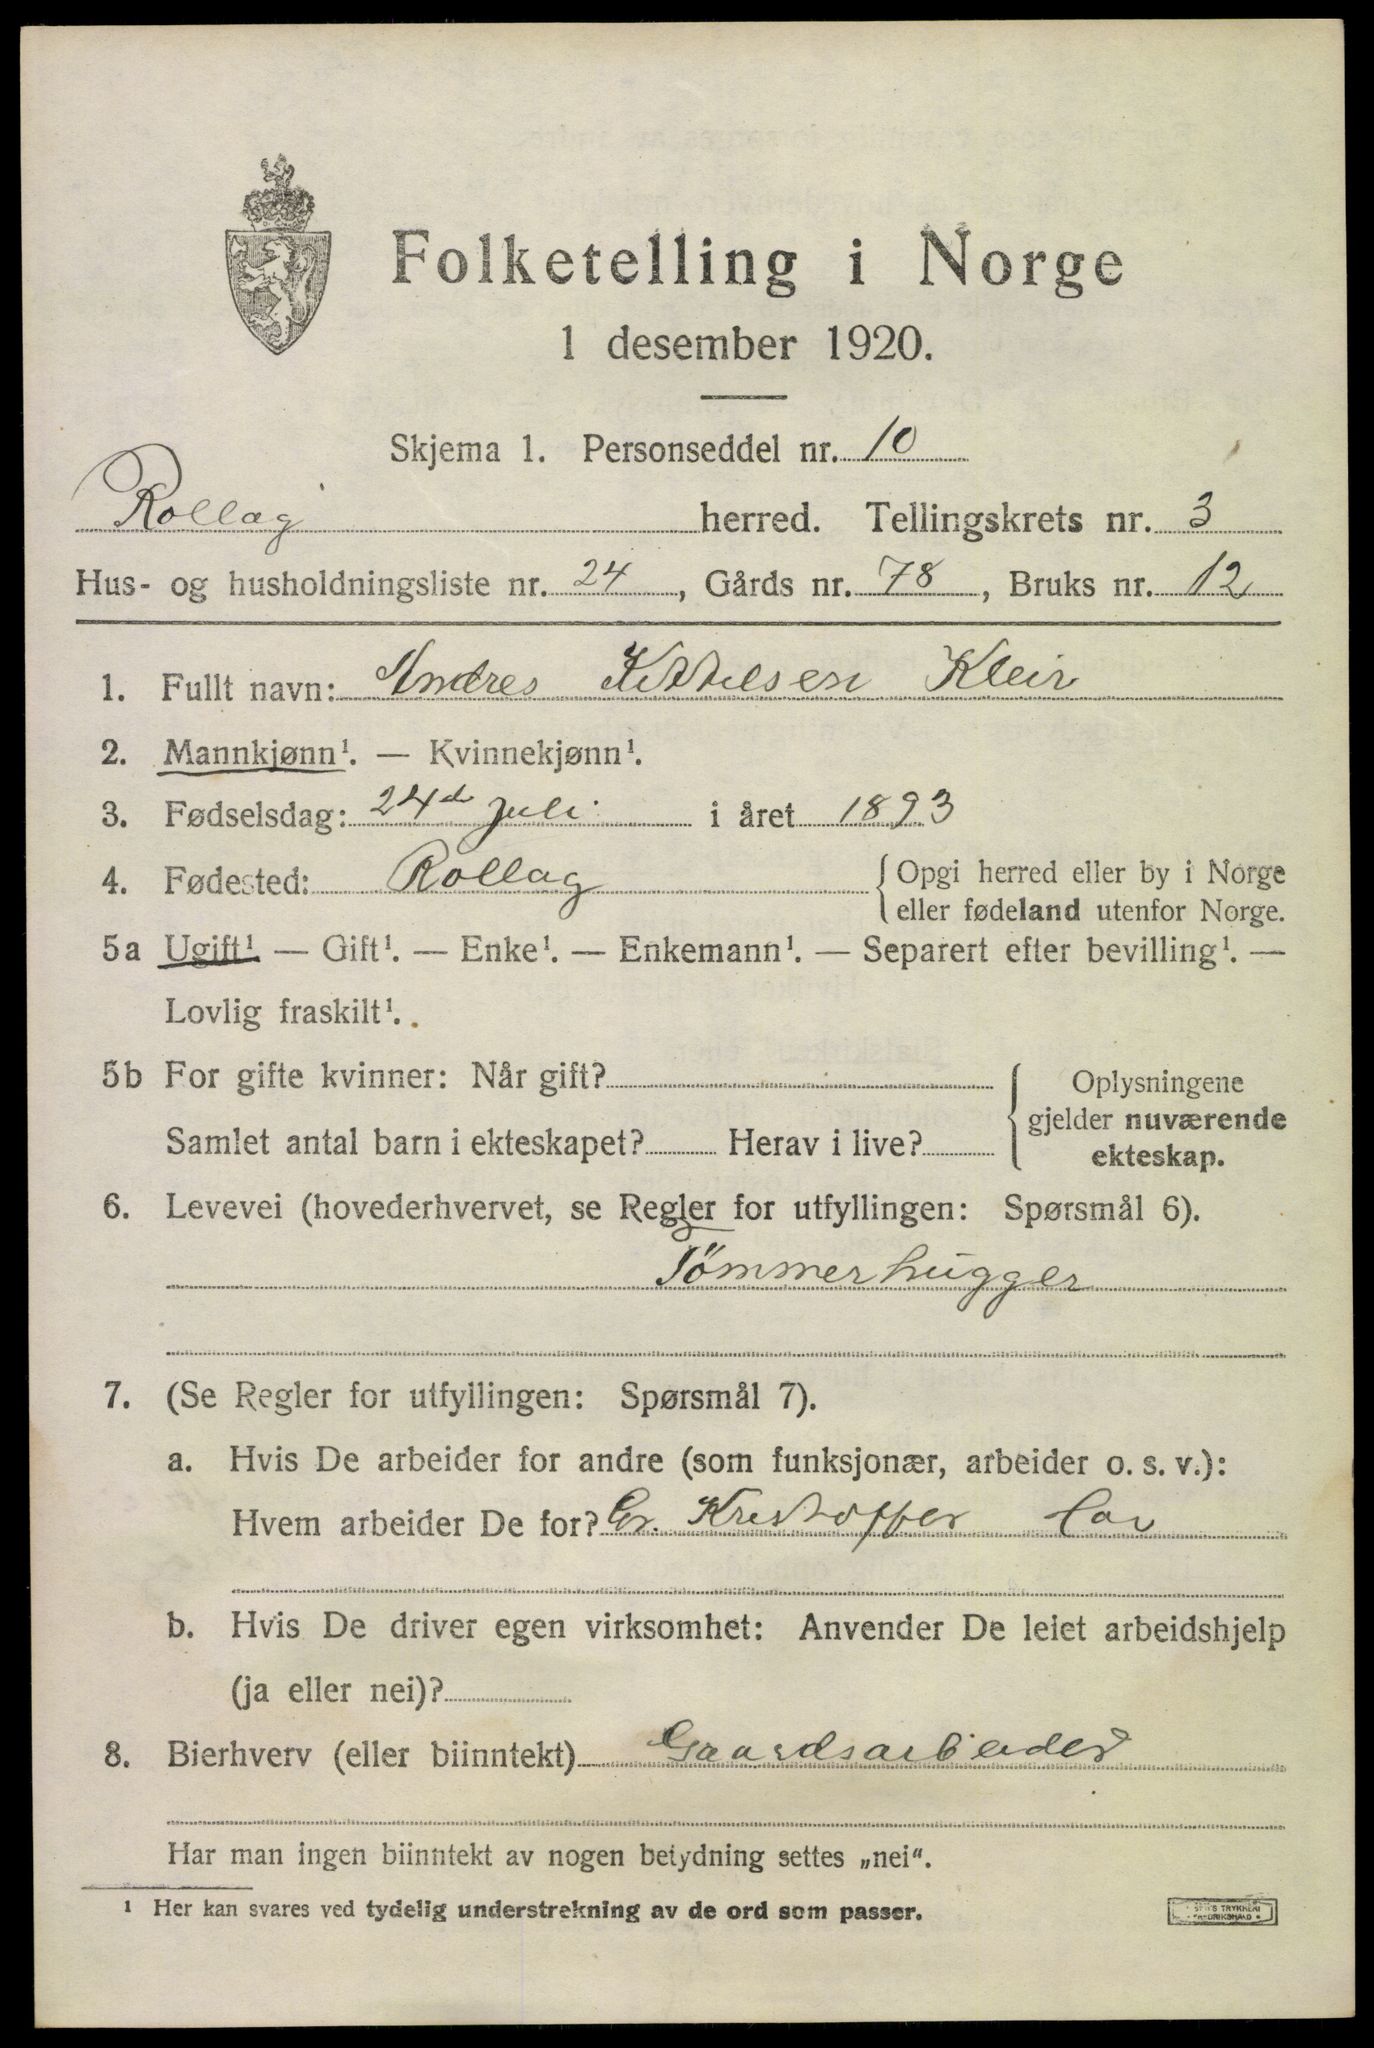 Folketelling i Norge
1 desember 1920.
Skjema 1. Personseddel nr. 10
Rollag herred. Tellingskrets nr. 3
Hus- og husholdningsliste nr. 24, Gårds nr. 78, Bruks nr. 12
1. Fullt navn: Andres Kittelsen Kleiv
2. Mannkjønn¹. — Kvinnekjønn¹.
3. Fødselsdag: 24de juli i året 1893
4. Fødested: Rollag {Opgi herred eller by i Norge
eller fødeland utenfor Norge.
5a Ugift¹. — Gift¹. — Enke¹. — Enkemann¹. — Separert efter bevilling¹. —
Lovlig fraskilt¹.
5b For gifte kvinner: Når gift?
Samlet antal barn i ekteskapet? Herav i live?
{Oplysningene
gjelder nuværende
ekteskap.
6. Levevei (hovederhvervet, se Regler for utfyllingen: Spørsmål 6).
Tömmerhugger
7. (Se Regler for utfyllingen: Spørsmål 7).
a. Hvis De arbeider for andre (som funksjonær, arbeider o. s. v.):
Hvem arbeider De for? Kristoffer
b. Hvis De driver egen virksomhet: Anvender De leiet arbeidshjelp
(ja eller nei)?
8. Bierhverv (eller biinntekt) Gaardsarbeider
Har man ingen biinntekt av nogen betydning settes „nei“.
¹ Her kan svares ved tydelig understrekning av de ord som passer.